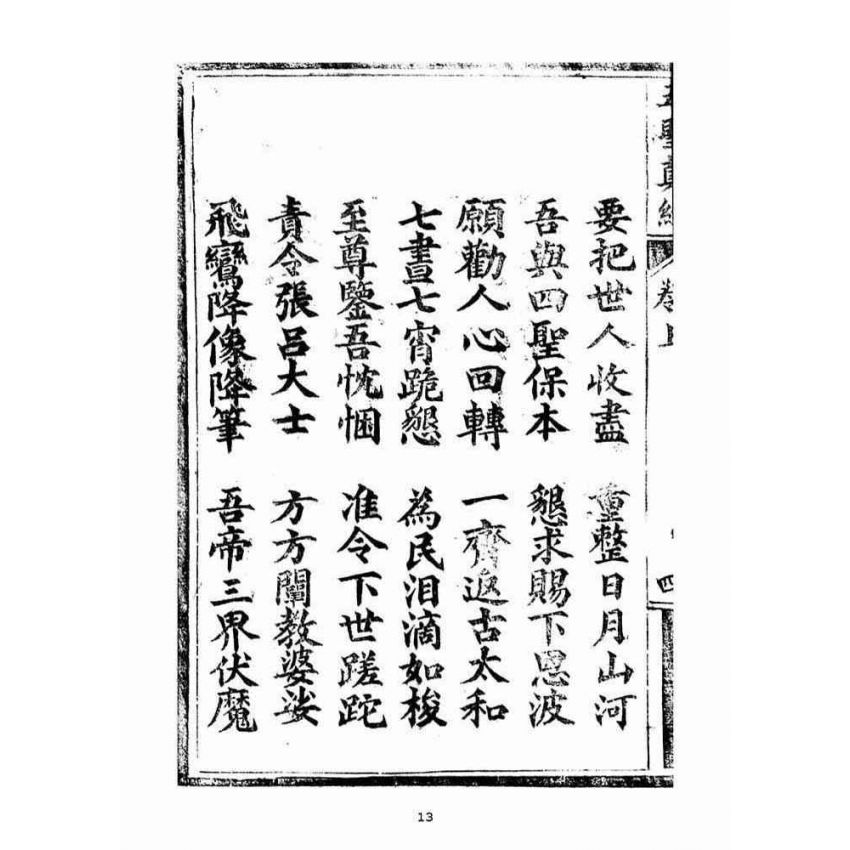 五聖真經 卷上 四
要把世人收盡 重整日月山河
吾與四聖保本 懇求賜下恩波
願勸人心回轉 一齊返古太和
七晝七宵跪懇 為民泪滴如梭
至尊鑒吾忱悃 准令下世蹉跎
責令張呂大士 方方闡教婆娑
飛鸞降像降筆 吾帝三界伏魔
13